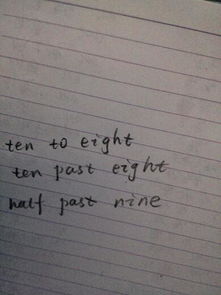 ten to eight
ten past eight
half past nine